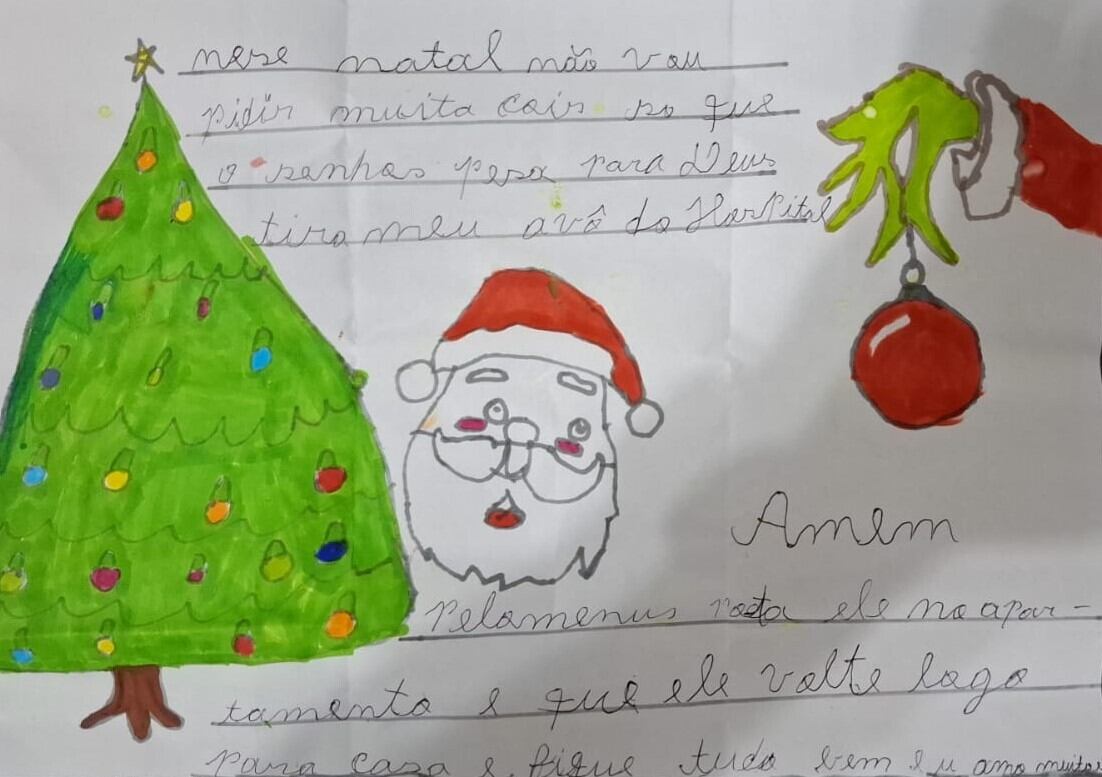 nese natal não vou
pidir muita cois so que
o senhos pesa para Deus
tira meu avô do Hospital
Amem
Pelomenus posta ele no apar-
tamento e que ele volte logo
para casa e fique tudo bem eu amo muito